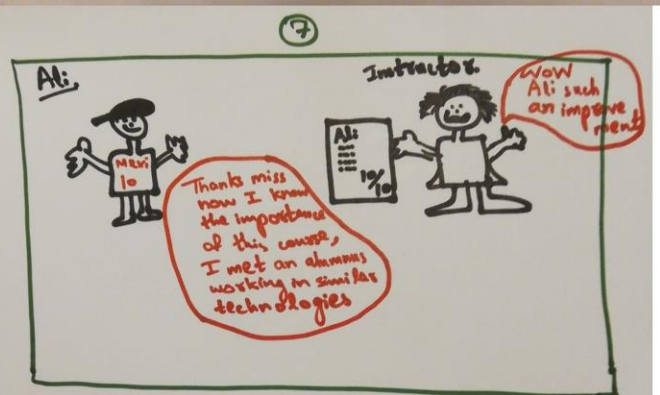 7
Ali
Instructor
WOW
Ali such
an improve
ment
Ali
10/10
Messi
10
Thanks miss
now I know
the importance
of this course,
I met an alumnus
working in similar
technologies